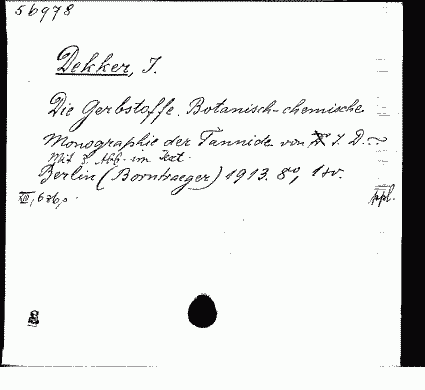 56978
Dekker, J.
Die Gerbstoffe. Botanisch-chemische
Monographie der Tannide von J. D.
Mit 3 Abb. im Text.
Berlin (Borntraeger) 1913. 8vo, 1 v.
XIII, 636,
ppl.